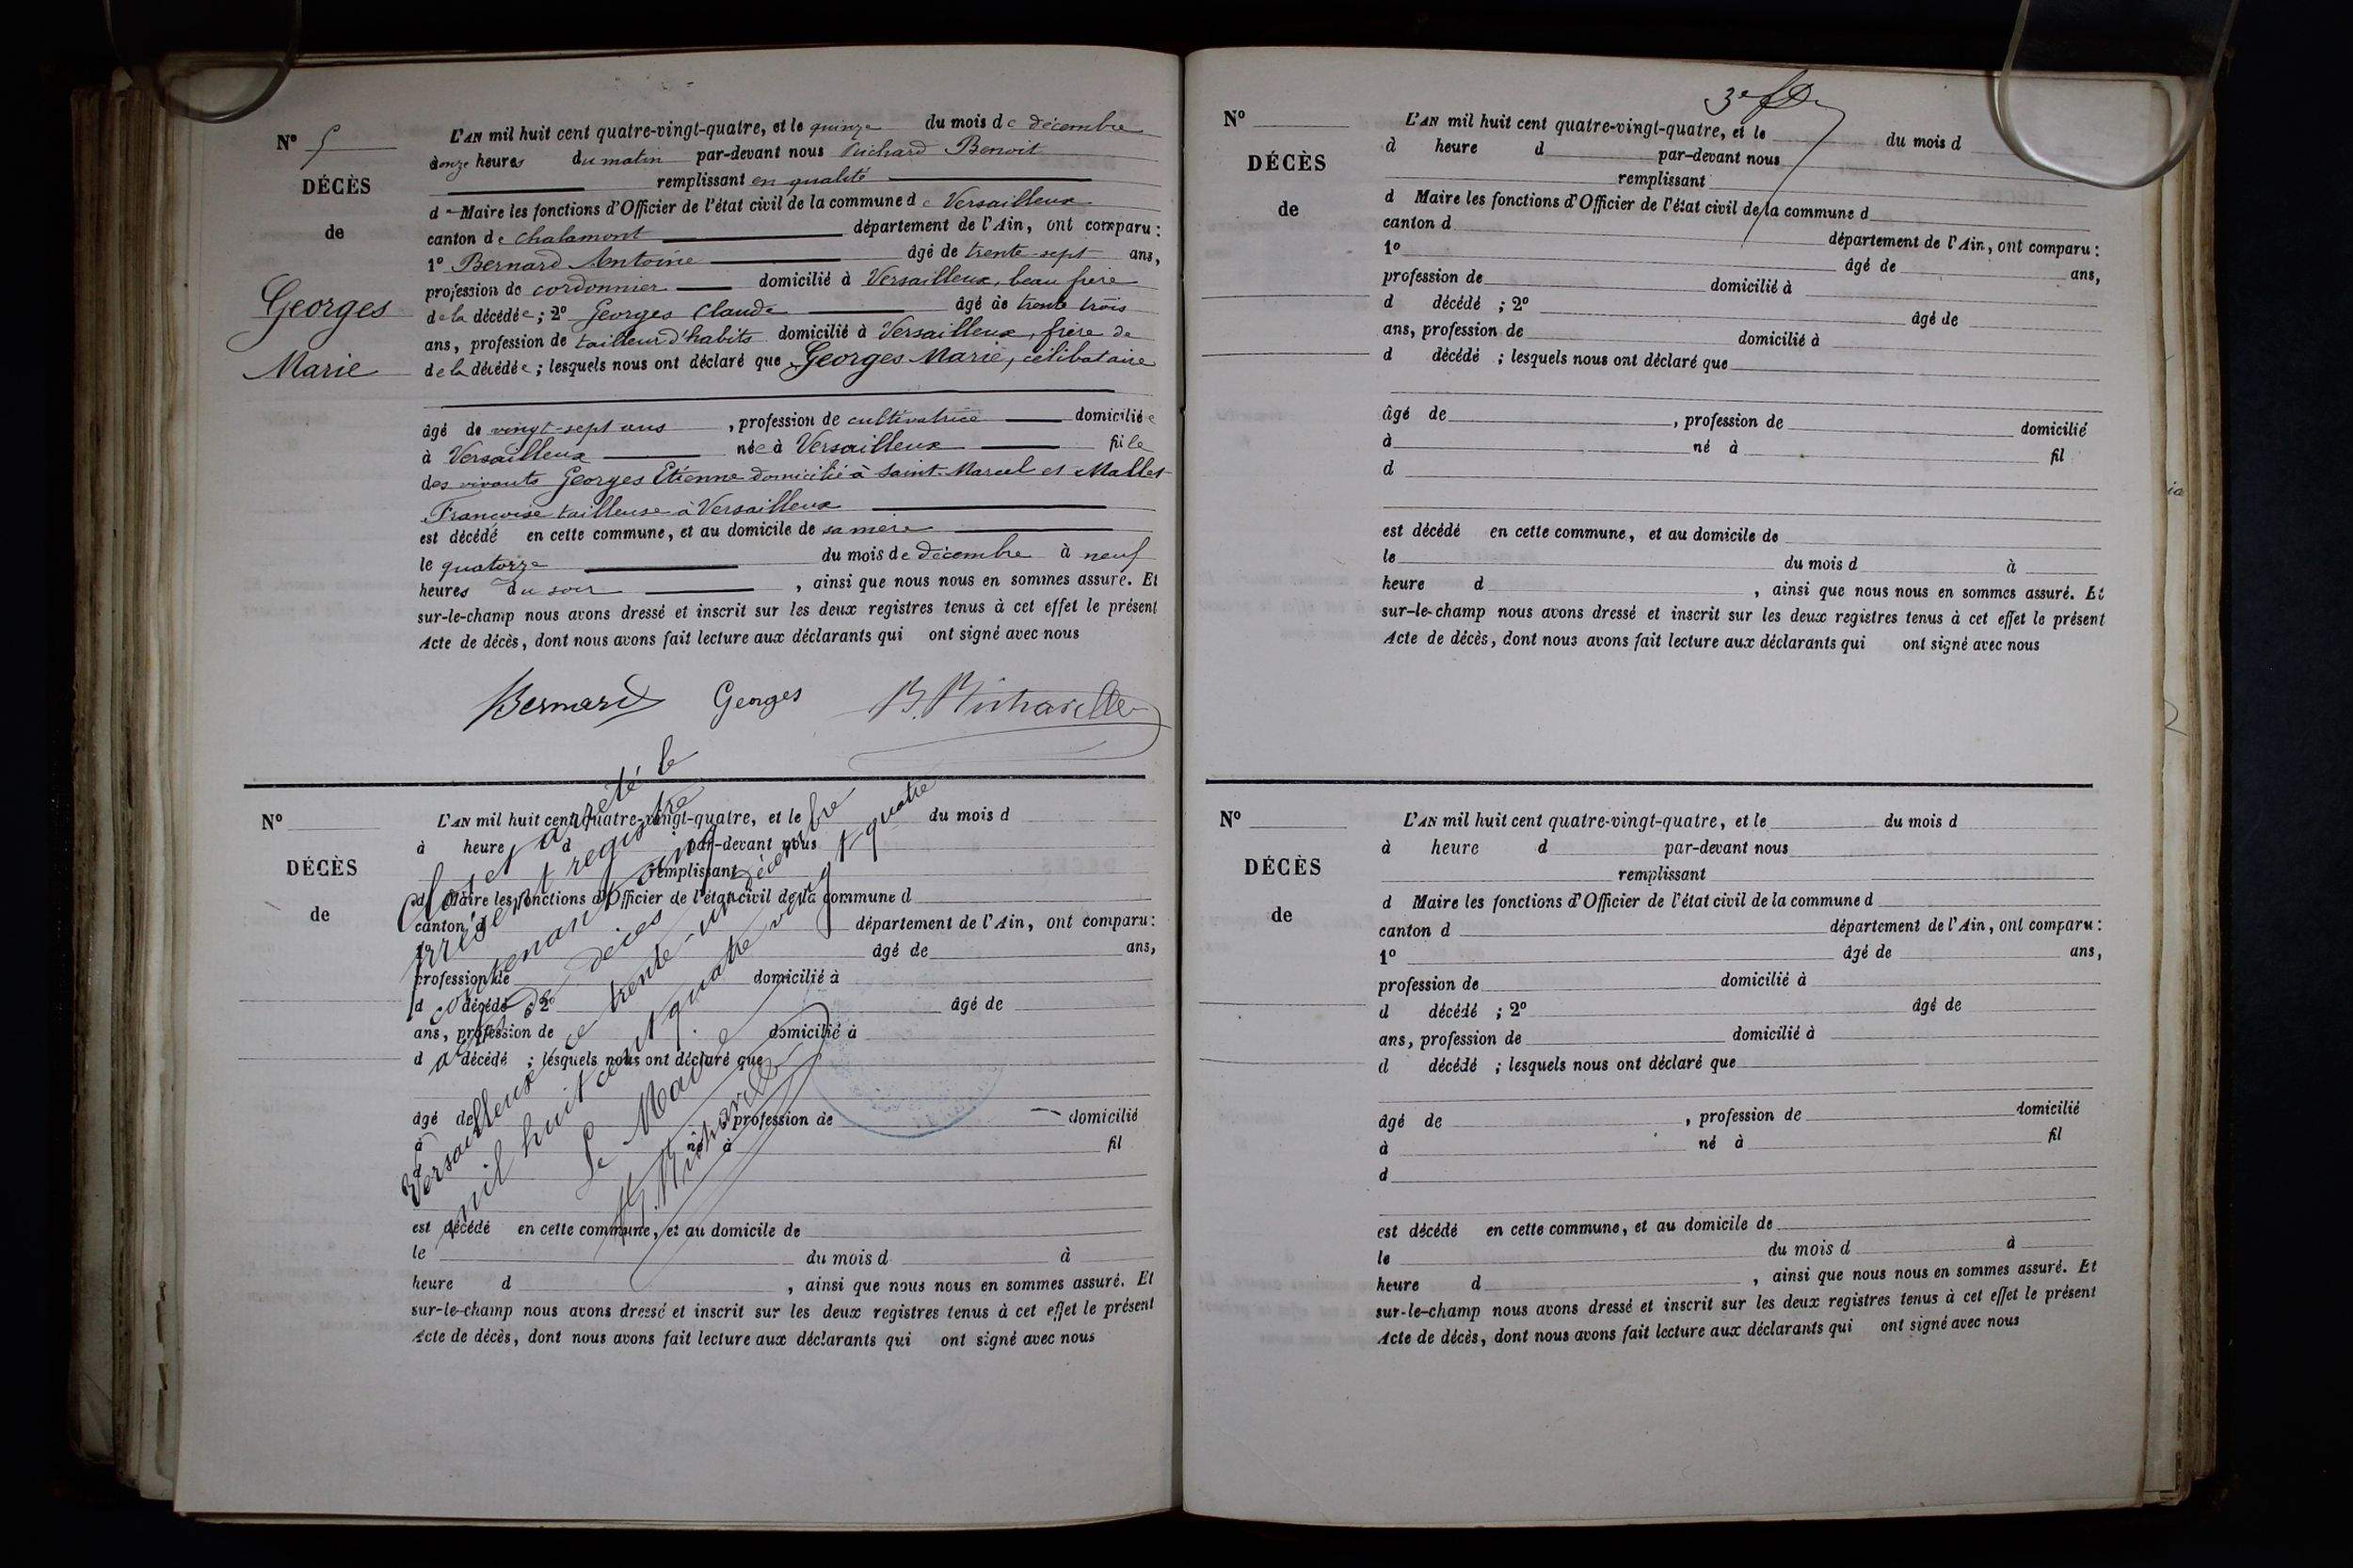 Nº 5
DÉCÈS
de
Georges
Marie
L'AN mil huit cent quatre-vingt-quatre, et le quinze du mois de décembre
à onze heures du matin par-devant nous Richard Benoit
remplissant en qualité
de Maire les fonctions d'Officier de l'état civil de la commune de Versailleux
canton de Chalamont département de l'Ain, ont comparu :
1º Bernard Antoine âgé de trente-sept ans,
profession de cordonnier domicilié à Versailleux, beau frère
de la décédée ; 2º Georges Claude âgé de trente trois
ans, profession de tailleur d'habits domicilié à Versailleux, frère de
de la décédée ; lesquels nous ont déclaré que Georges Marie, célibataire
âgé de vingt-sept ans , profession de cultivatrice domiciliée
à Versailleux née à Versailleux fille
des vivants Georges Etienne domicilié à Saint-Marcel et Mallet
Françoise tailleuse à Versailleux
est décédé en cette commune, et au domicile de sa mère
le quatorze du mois de décembre à neuf
heures du soir , ainsi que nous nous en sommes assuré. Et
sur-le-champ nous avons dressé et inscrit sur les deux registres tenus à cet effet le présent
Acte de décès, dont nous avons fait lecture aux déclarants qui ont signé avec nous
Bernard Georges
Nº
DÉCÈS
de
L'AN mil huit cent quatre-vingt-quatre, et le du mois d
à heure d par-devant nous
remplissant
d Maire les fonctions d'Officier de l'état civil de la commune d
canton d département de l'Ain, ont comparu :
1º âgé de ans,
profession de domicilié à
d décédé 2º âgé de
ans, profession de domicilié à
d décédé ; lesquels nous ont déclaré que
âgé de profession de domicilié
à né à fil
d
est décédé en cette commune, et au domicile de
le du mois d à
heure d , ainsi que nous nous en sommes assuré. Et
sur-le-champ nous avons dressé et inscrit sur les deux registres tenus à cet effet le présent
Acte de décès, dont nous avons fait lecture aux déclarants qui ont signé avec nous
Clos et arrêté le
présent registre
contenant cinq
actes de décès
Versailleux le trente-un décembre
mil huit cent quatre vingt quatre
Le Maire
3e
Nº
DÉCÈS
de
L'AN mil huit cent quatre-vingt-quatre, et le du mois d
à heure d par-devant nous
remplissant
d Maire les fonctions d'Officier de l'état civil de la commune d
canton d département de l'Ain, ont comparu :
1º âgé de ans,
profession de domicilié à
d décédé ; 2º âgé de
ans, profession de domicilié à
d décédé ; lesquels nous ont déclaré que
âgé de , profession de domicilié
à né à fil
d
est décédé en cette commune, et au domicile de
le du mois d à
heure d , ainsi que nous nous en sommes assuré. Et
sur-le-champ nous avons dressé et inscrit sur les deux registres tenus à cet effet le présent
Acte de décès, dont nous avons fait lecture aux déclarants qui ont signé avec nous
Nº
DÉCÈS
de
L'AN mil huit cent quatre-vingt-quatre, et le du mois d
à heure d par-devant nous
remplissant
d Maire les fonctions d'Officier de l'état civil de la commune d
canton d département de l'Ain, ont comparu :
1º âgé de ans,
profession de domicilié à
d décédé ; 2º âgé de
ans, profession de domicilié à
d décédé ; lesquels nous ont déclaré que
âgé de , profession de domicilié
à né à fil
d
est décédé en cette commune, et au domicile de
le du mois d à
heure d , ainsi que nous nous en sommes assuré. Et
sur-le-champ nous avons dressé et inscrit sur les deux registres tenus à cet effet le présent
Acte de décès, dont nous avons fait lecture aux déclarants qui ont signé avec nous